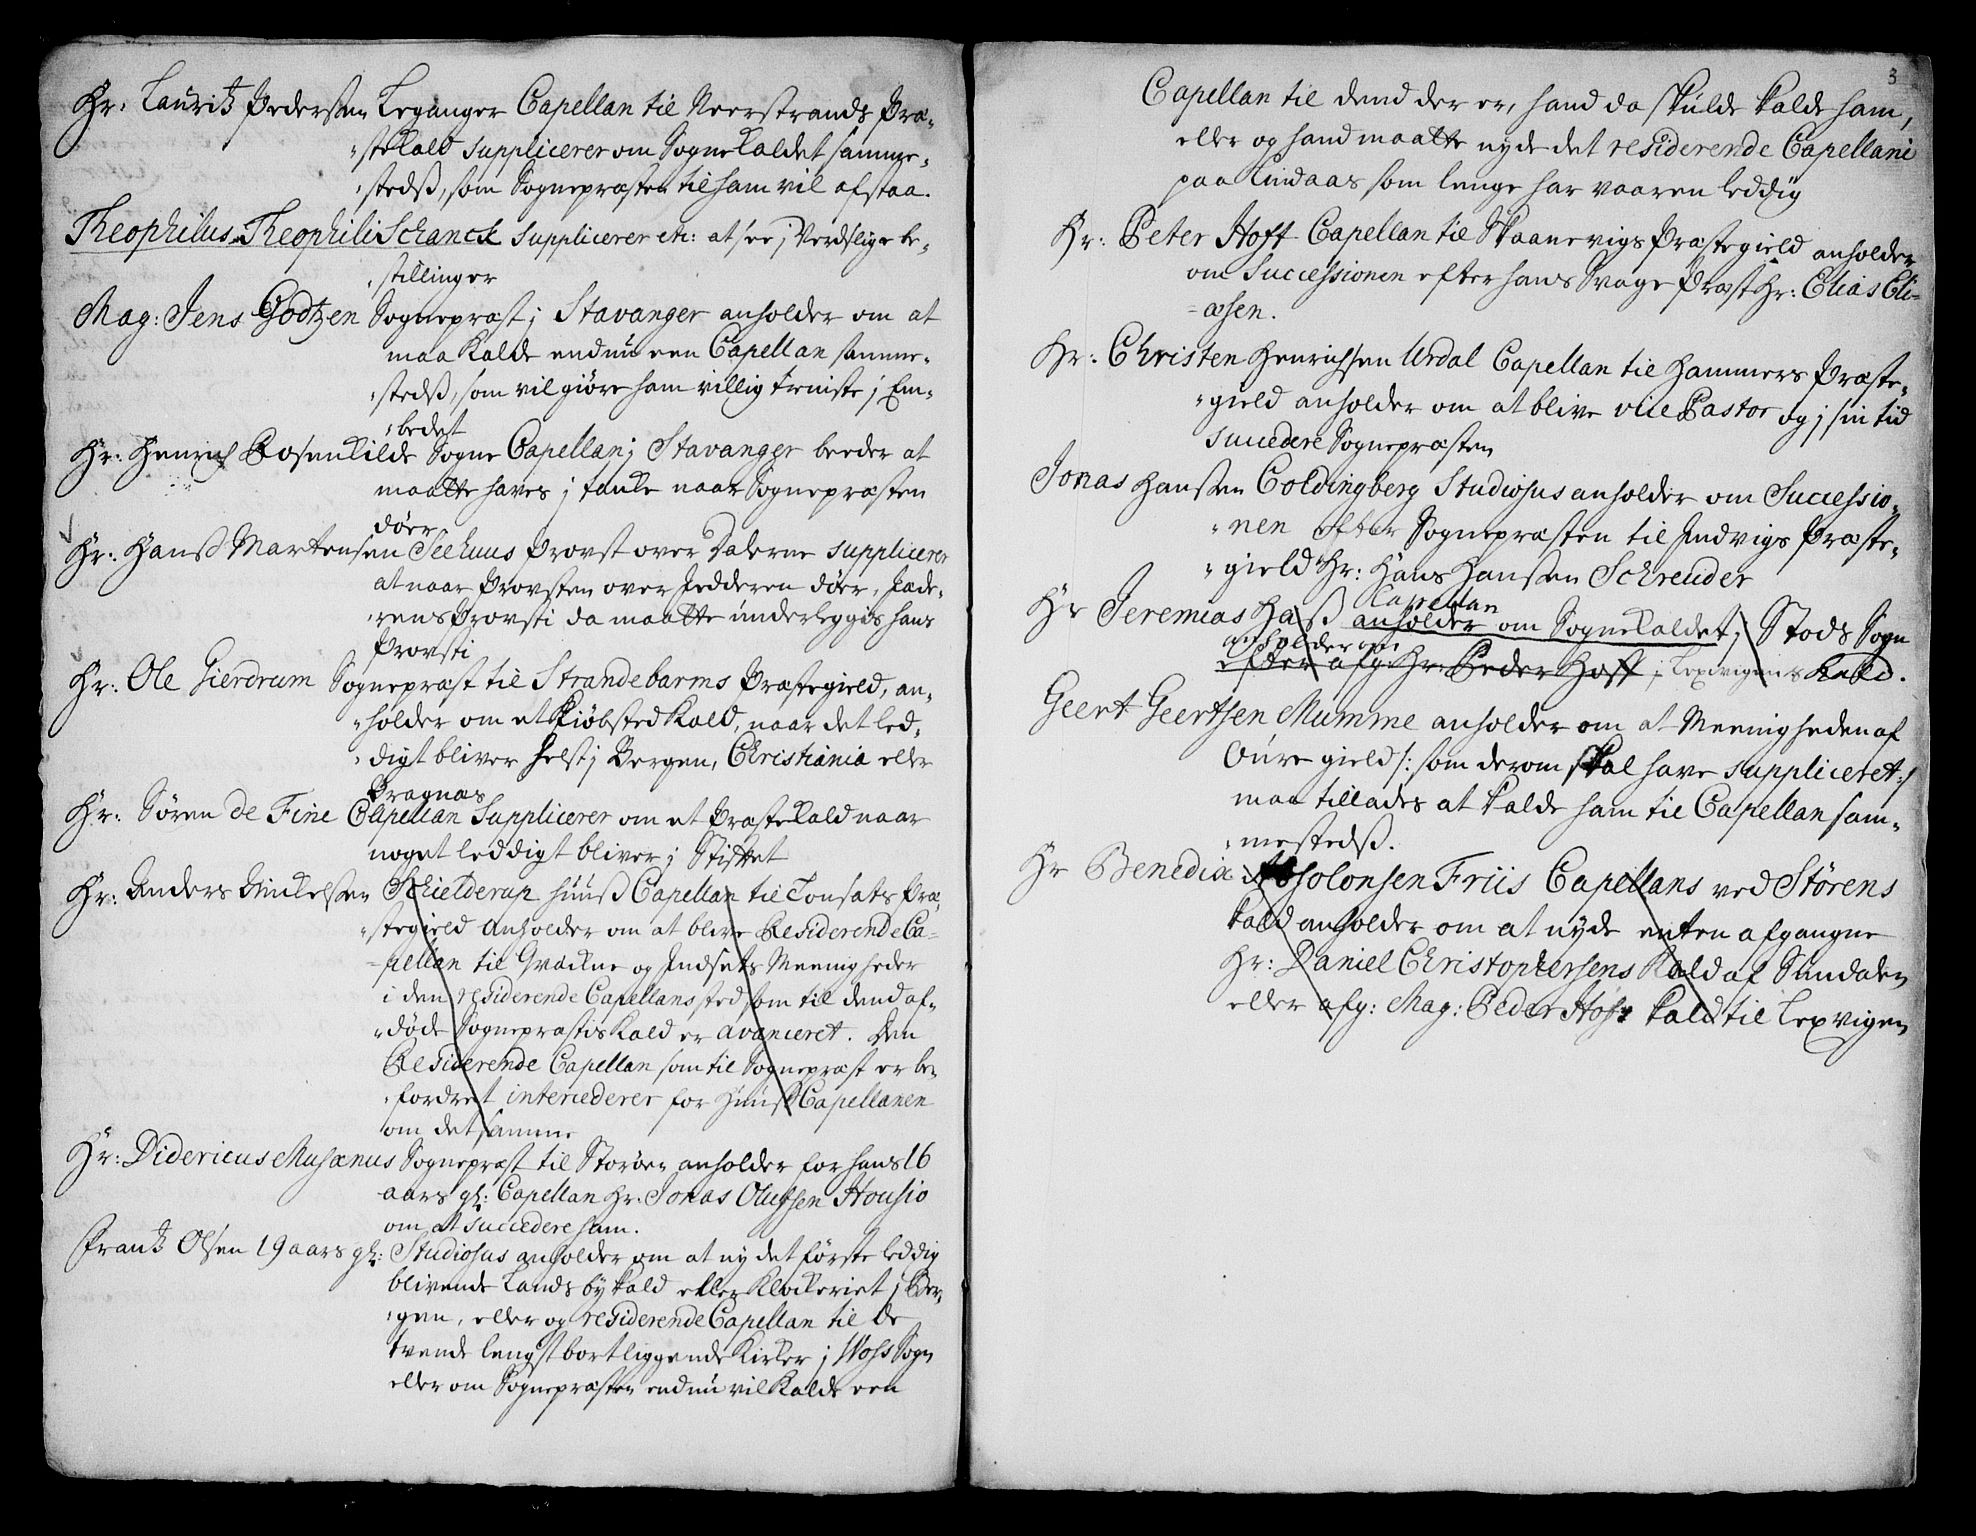 Hr: Lauritz Pederssen Leganger Capellan til Neerstrands Præ-
stekald supplicerer om Sognekaldet samme-
stedß, som Sognepræsten til ham vil afstaa.
Theophilus Theophili Schanck supplicerer etc: at see j Verdslige be-
stillinger
Mag: Jens Godtzen Sognepræst j Stavanger anholder om at
maa kalde endnu een Capellan samme-
stedß, som vil giøre ham villig tieniste j Em-
bedet
Hr: Henrich Rosenkilde Sogne Capellan j Stavanger beeder at
maatte haves j tanke naar Sognepræsten
døer
Hr: Hanß Martensen Seehuus Provst over Dalerne supplicerer
at naar Provsten over Jedderen døer, Jæde-
rens Provsti da maatte underleggis hans
Provsti
Hr: Ole Gierdrum Sognepræst til Strandebarms Præstegield, an-
holder om et Kiøbsted Kald, naar det led-
digt bliver helst j Bergen, Christiania eller
Bragnæs
Hr: Søren de Fine Capellan Supplicerer om et Præstekald naar
noget leddigt bliver j Stiftet
Hr: Anders Mickelssen Schielderup huuß Capellan til Tonsæts Præ-
stegield anholder om at blive Residerende Ca-
pellan til Qvickne og Indsets Meenigheder
i den residerende Capellans sted som til dend af-
døde Sognepræstis Kald er avanceret. Den
Residerende Capellan som til Sognepræst er be-
fordret intercederer for Huuß Capellanen
om det samme
Hr: Didericus Musæus Sognepræst til Storøen anholder for hans 16
aars gl: Capellan Hr. Jonas Olufsen Housio
om at succedere ham.
Frantz Olsen 19 aars gl: Studiosus anholder om at ny det første leddig
blivende Landsbykald eller Klockeriet j Ber-
gen, eller og residerende Capellan til de
tvende lengst bortliggende Kirker j Woss Sogn
eller om Sognepræsten endnu vil kalde een
3
Capellan til dend der er, hand da skulde kalde ham,
eller og hand maatte nyde det residerende Capellanie
paa Lindaas som lenge har vaaren leddig
Hr: Peter Hoff Capellan til Skaanevigs Præstegield anholder
om Successionen efter hans Svage Præst Hr: Elias Eli-
æsen.
Hr: Christen Henrichsen Urdal Capellan til Hammers Præste-
gield anholder om at blive vice Pastor og j sin tid
succedere Sognepræsten
Jonas Hanssen Coldingberg Studiosus anholder om Successio-
nen efter Sognepræsten til Indvigs Præste-
gield Hr: Hans Hanssen Schreuder
Capellan
Hr Jeremias Haß anholder om Sognekaldet j Stods Sogn
anholder om
efter afg: Hr. Peder Hoff j Lexvigens Kald.
Geert Geertsen Mumme anholder om at Meenigheden af
Oure gield /: som derom skal have suppliceret :/
maa tillades at kalde ham til Capellan sam-
mestedß.
Hr Benedix Absolonsen Friis Capellans ved Størens
kald anholder om at nyde enten afgangne
Hr: Daniel Christophersens Kald af Sundalen
eller afg: Mag: Peder Hofs kald til Lexvigen